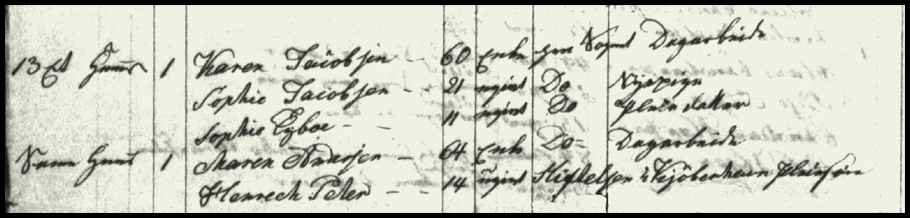 13 Et Huus 1 Karen Jacobsen 60 Enke her Sognet Dagarbeide
Sophie Jacobsen 21 ugivt Do Sypige
Sophie Eyboe 11 ugivt Do Pleiedatter
Samme Huus 1 Maren Andersen 64 Enke Do Dagarbeide
Henrech Peter 14 ugivt Stiftelsen i Kjöbenhavn Pleiesön